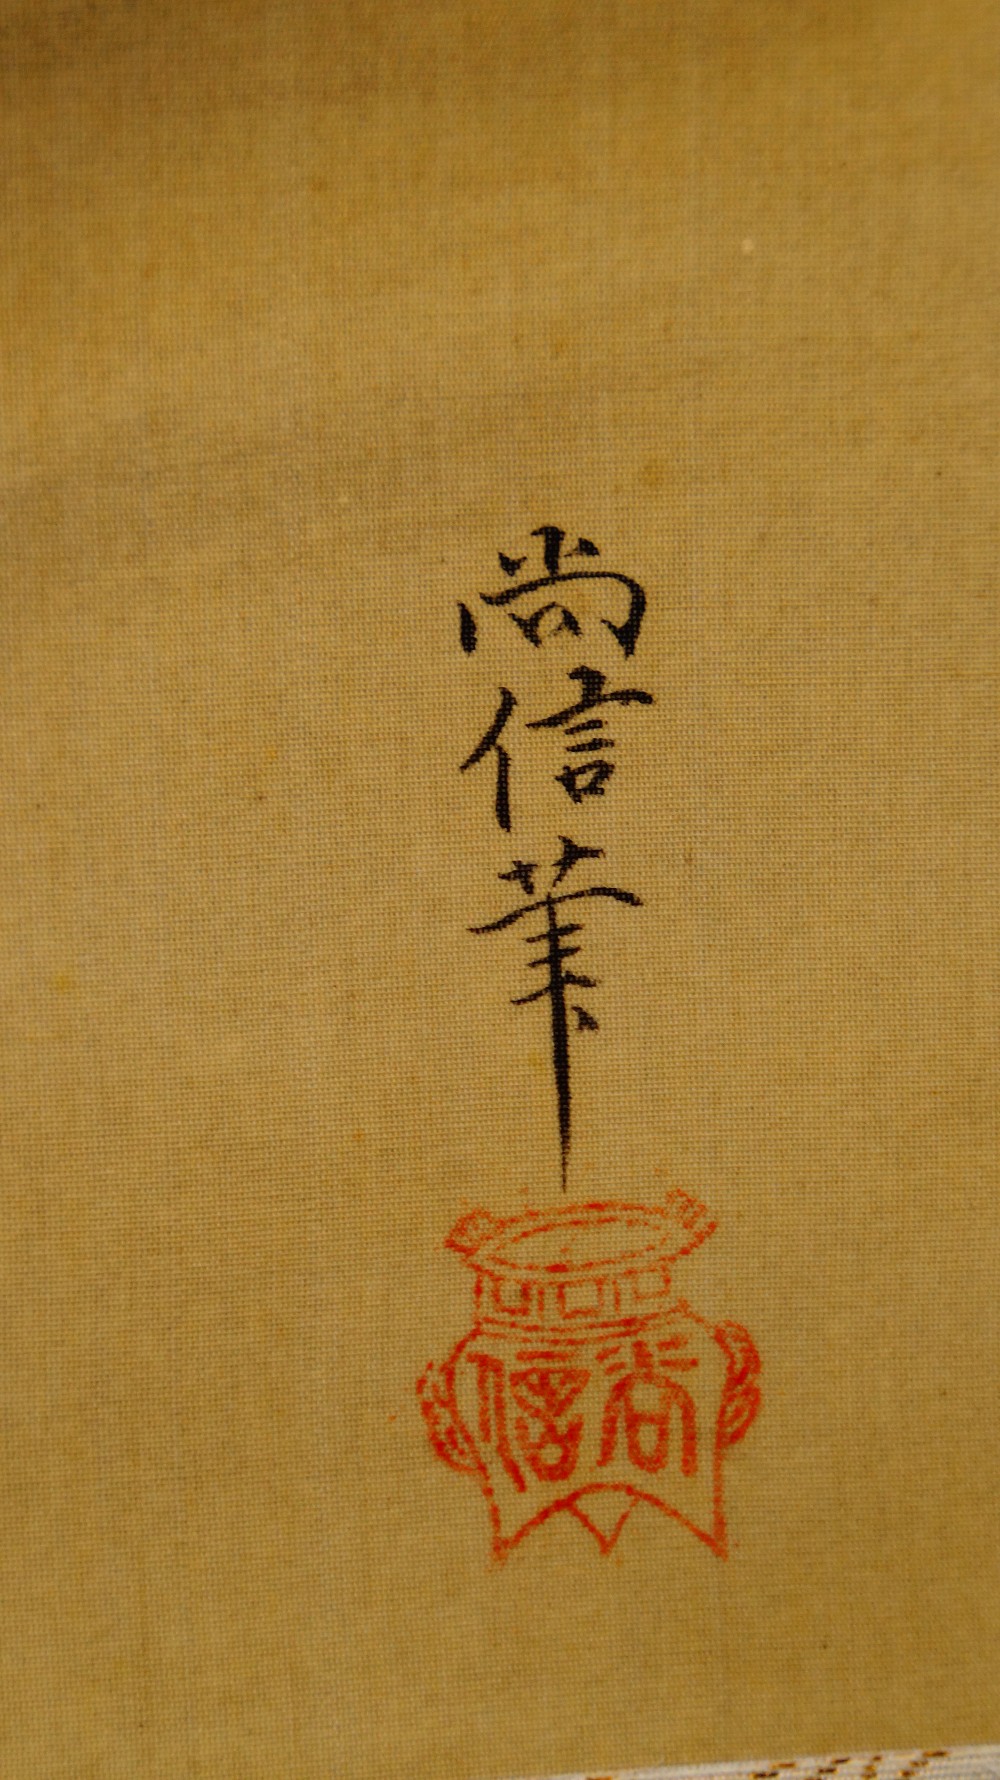 尚信筆
尚信